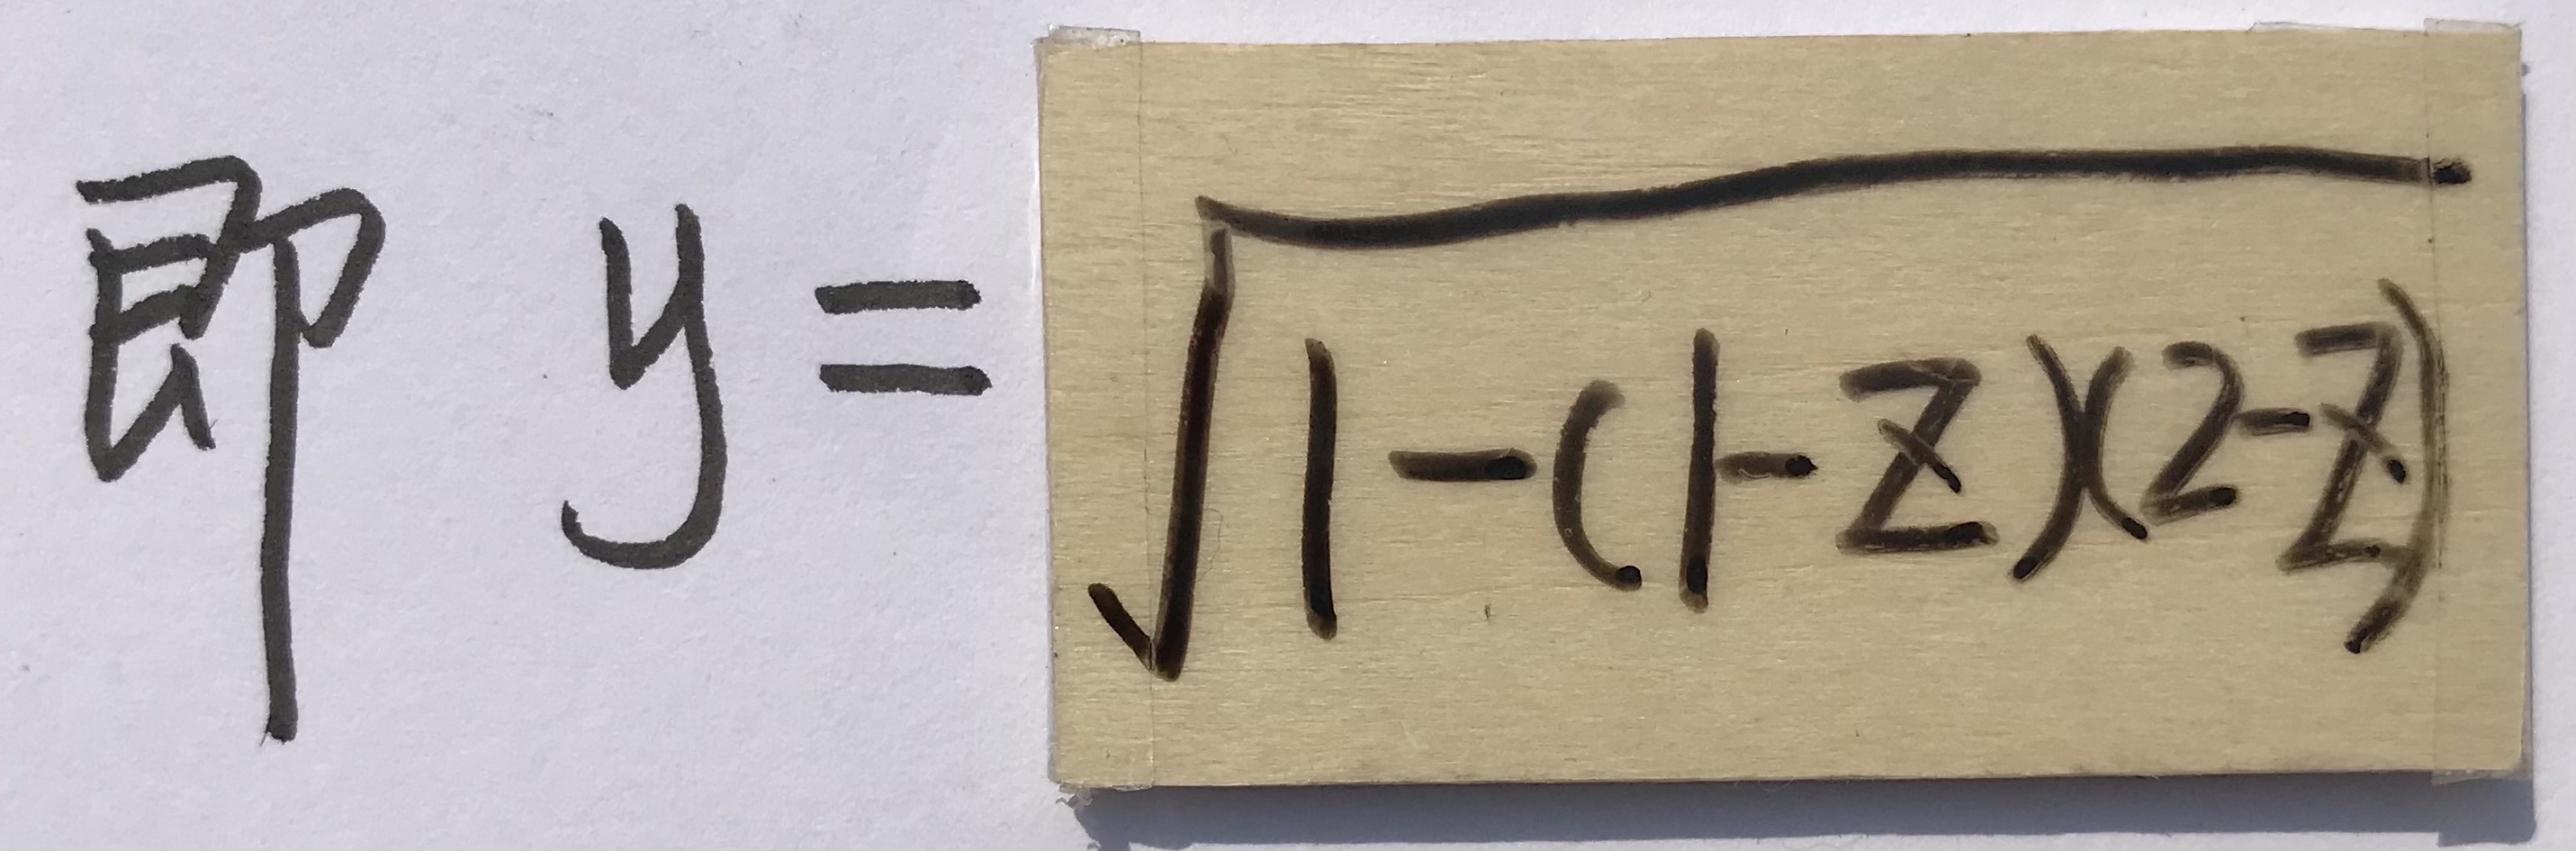 即 y=√1-(1-z)(2-z)